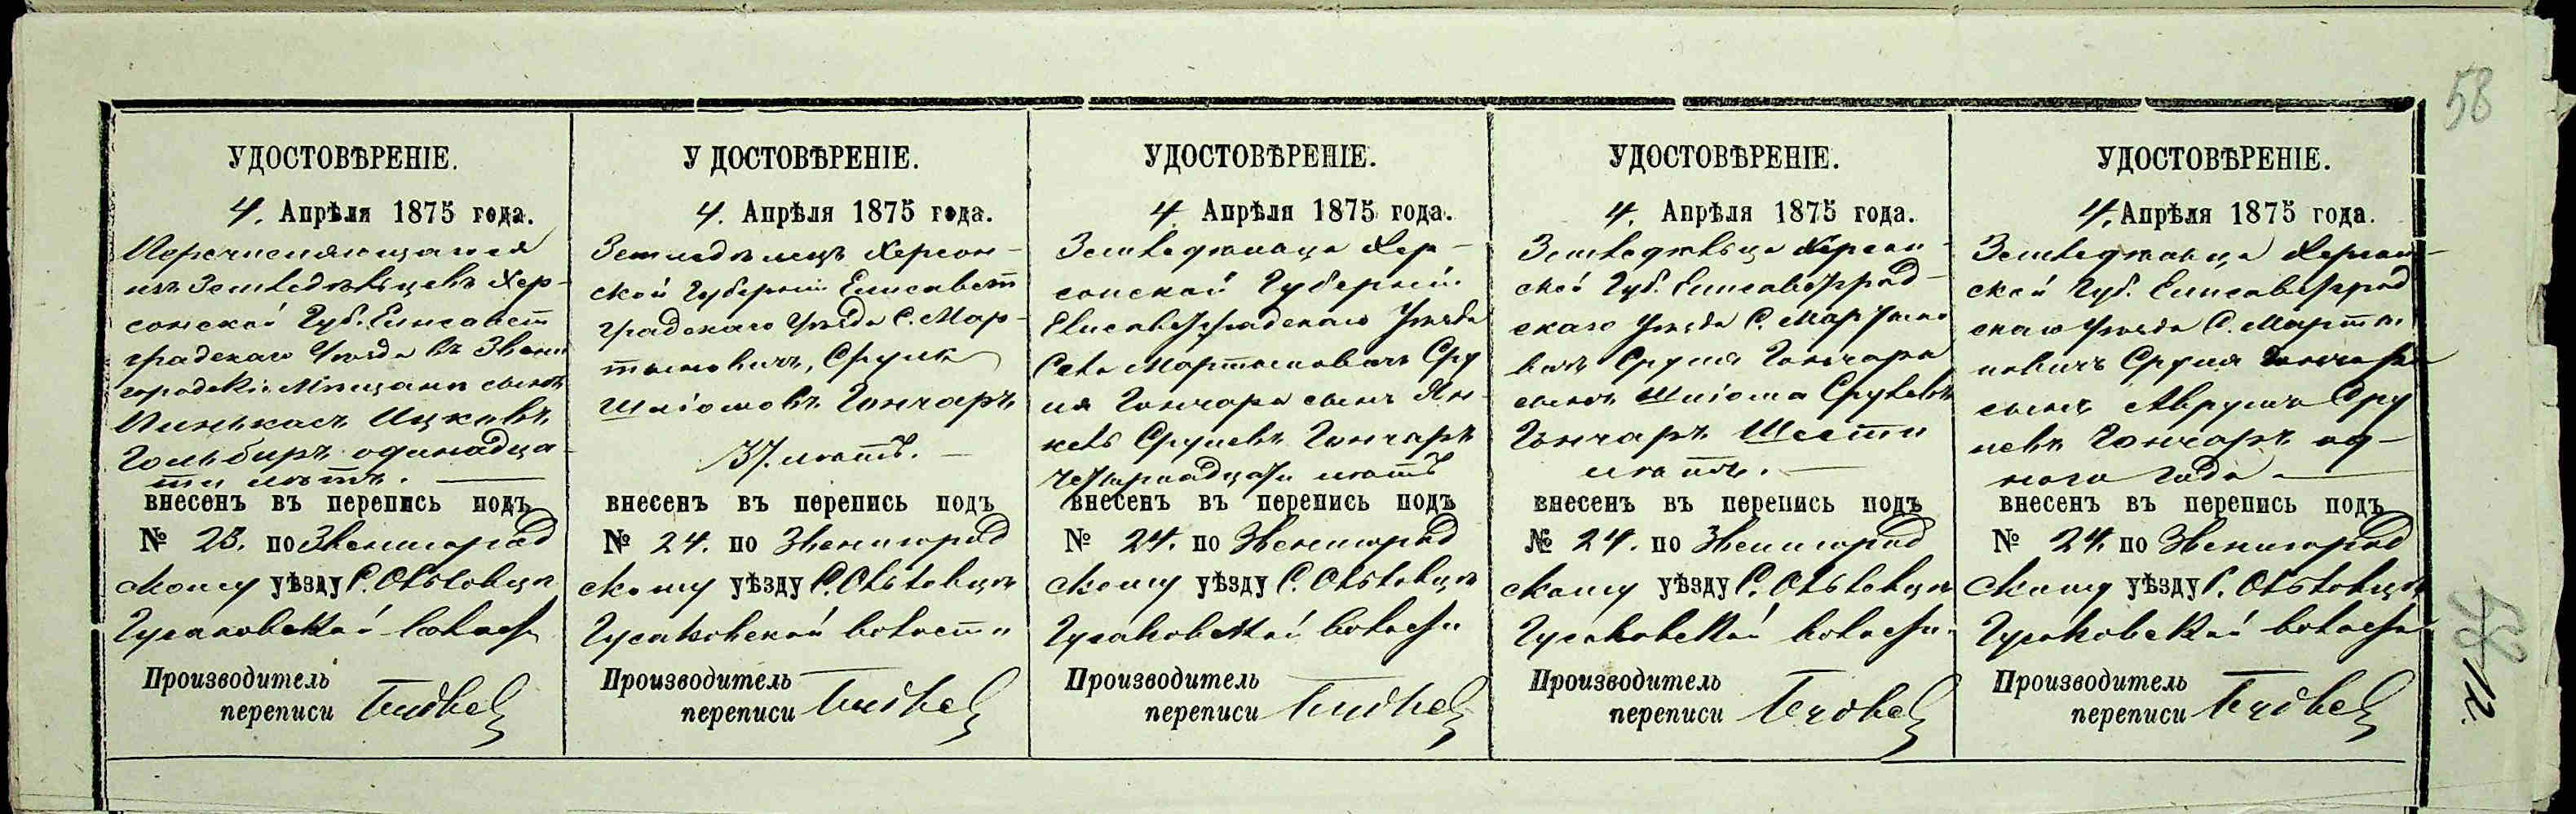 58
УДОСТОВѢРЕНІЕ.
4. Апрѣля 1875 года.
Перечисляющагося
изъ Земледѣльцевъ Хер-
сонской Губ. Елисавет
градскаго Уѣзда въ Звени
городскіе Мѣщане сынъ
Пинькасъ Ицковъ
одинадца
ти лѣтъ.
внесенъ въ перепись подъ
№ 23. по Звенигород
скому уѣзду С.
Гусаковской волости
Производитель
переписи
УДОСТОВѢРЕНІЕ.
4. Апрѣля 1875 года.
Земледѣлецъ Херсон-
ской Губерніи Елисавет
градскаго Уѣзда С. Мар-
тоновичъ, Сруль
Шліомовъ Гончаръ
37. лѣтъ.
внесенъ въ перепись подъ
№ 24. по Звенигород
скому уѣзду С.
Гусаковской волости
Производитель
переписи
УДОСТОВѢРЕНІЕ.
4 Апрѣля 1875 года.
Земледѣльца Хер-
сонской Губерніи
Елисаветградскаго Уѣзда
Села Мартоновичъ Сру
ля Гончара сынъ Ян-
кель Срулевъ Гончаръ
Четырнадцати лѣтъ
внесенъ въ перепись подъ
№ 24. по Звенигород
скому уѣзду С.
Гусаковской волости
Производитель
переписи
УДОСТОВѢРЕНІЕ.
4. Апрѣля 1875 года.
Земледѣльца Херсон-
ской Губ. Елисаветград-
скаго Уѣзда С. Мартоно
вичъ Сруля Гончара
сынъ Шліома Срулевъ
Гончаръ Шести
лѣтъ.
внесенъ въ перепись подъ
№ 24. по Звенигород
скому уѣзду С.
Гусаковской волости.
Производитель
переписи
УДОСТОВѢРЕНІЕ.
4. Апрѣля 1875 года.
Земледѣльца Херсон-
ской Губ. Елисаветград
скаго Уѣзда С. Марто
новичъ Сруля Гончара
сынъ Аврумъ Сру
левъ Гончаръ од-
ного года
внесенъ въ перепись подъ
№ 24. по Звенигород
скому уѣзду С.
Гусаковской волости
Производитель
переписи